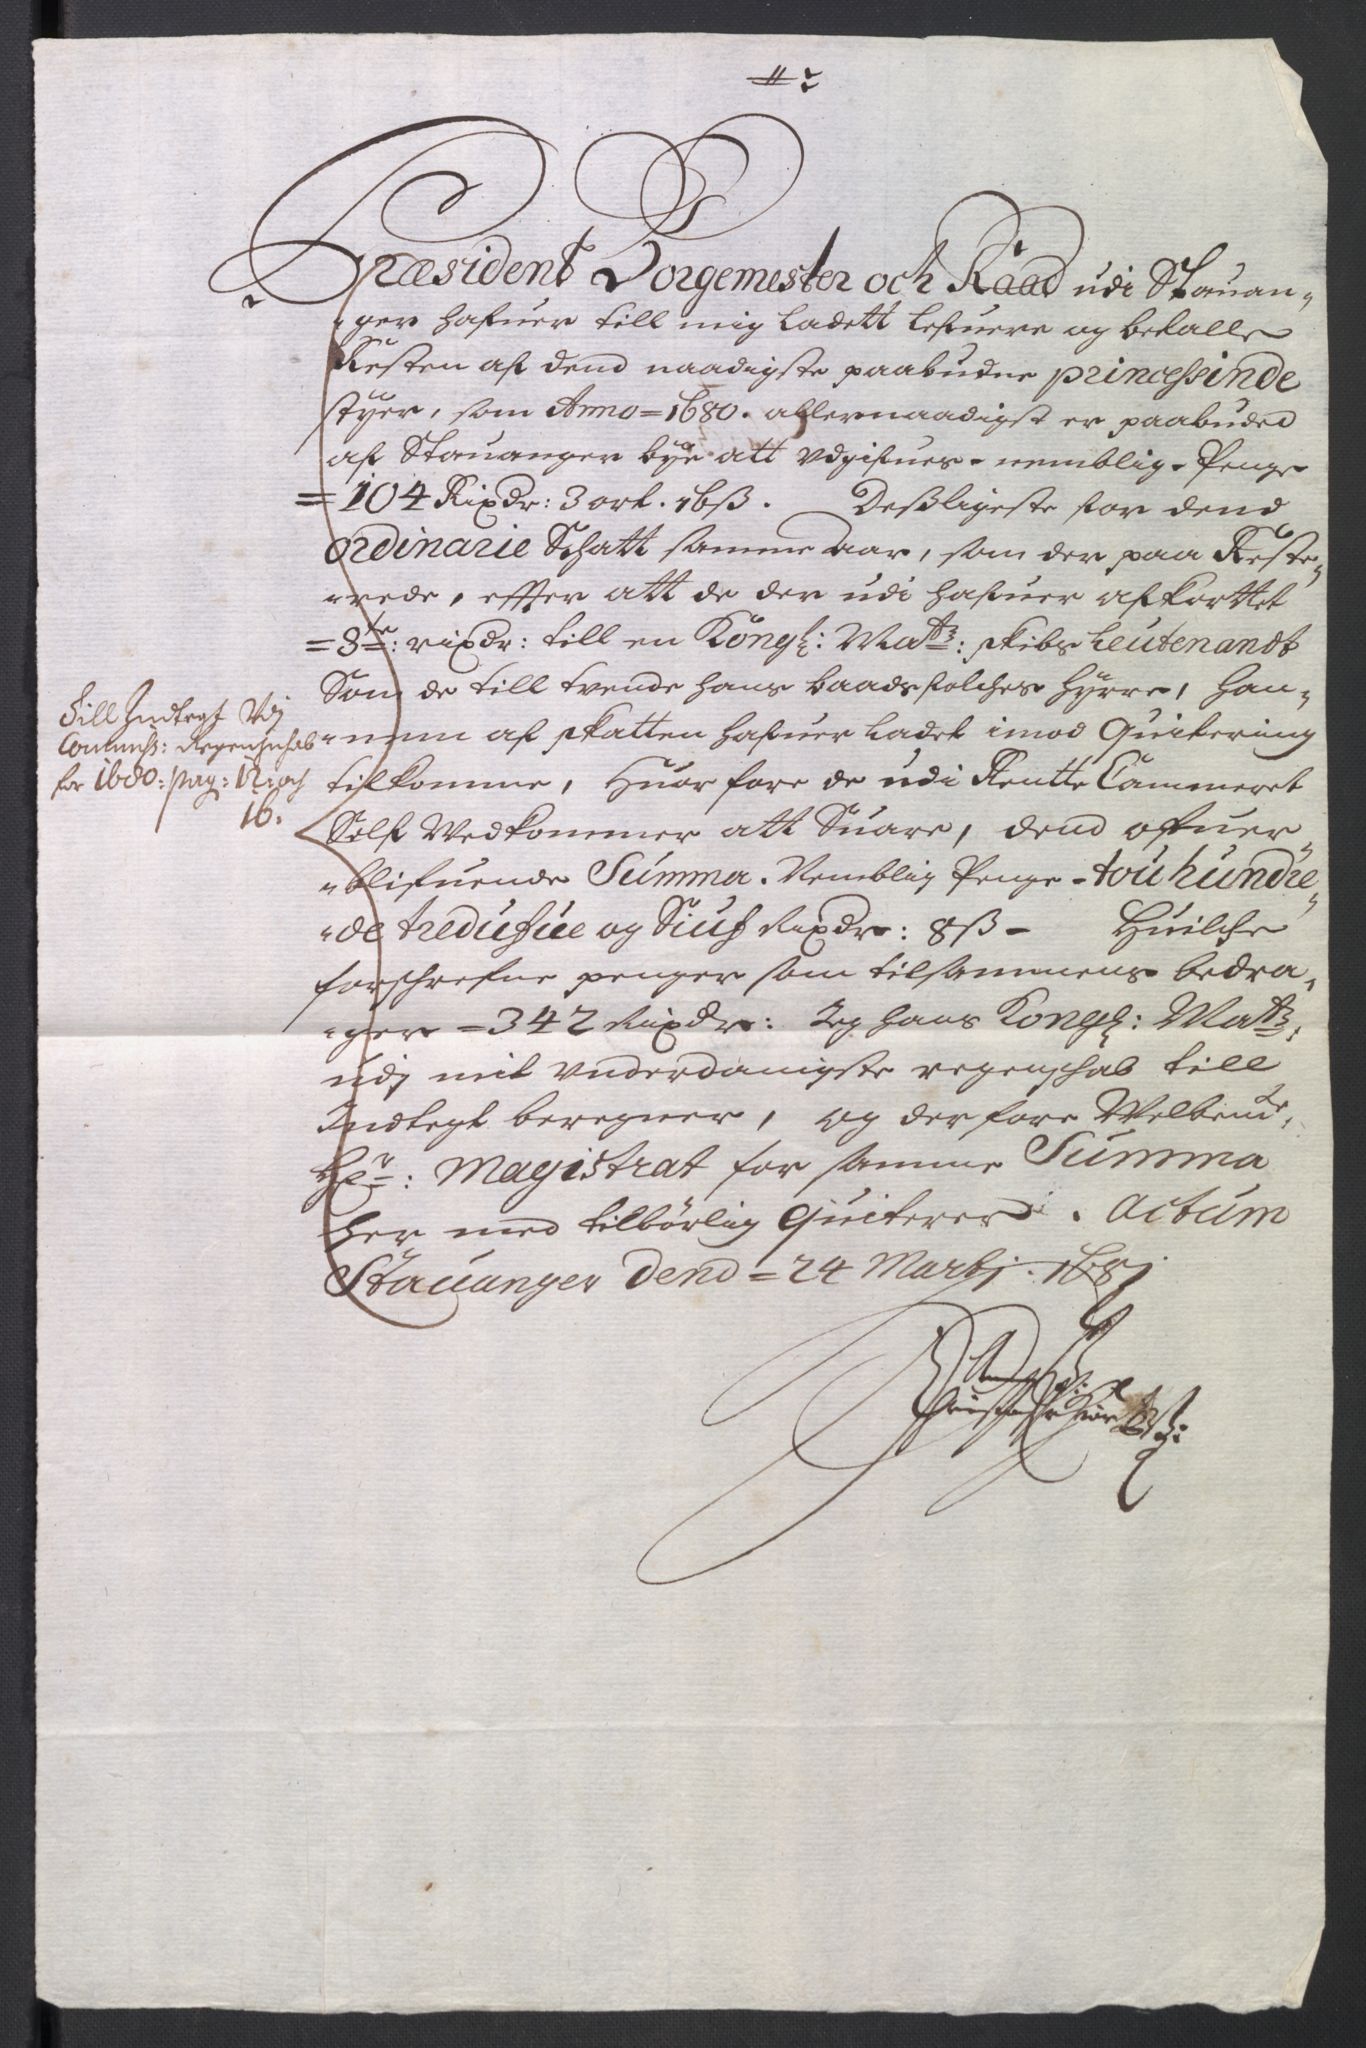 Præsident Borgemester och Raad udi Stauan-
-ger hafuer till mig ladett lefuere og betalle
Resten af dend naadigste paabudne princessinde
styer, som Anno = 1680. allernaadigst er paabuded
af Stauanger bye att udgifues - nemblig - Penge
= 104 Rixdr: 3 ort. 16ß. Deßligeste for dend
Ordinarie Schatt samme aar, som der paa Reste-
-rede, effter att de der udi hafuer afkorttet
= 8te: rixdr: till en Kongl: Matz: skibs Leutenandt
Som de till tvende hans baadsfolches hyrre, han-
-nem af skatten hafuer ladet imod Quitering
tilkomme, Huor fore de udi Rentte Cammeret
Self Vedkommer att Suare, dend ofuer-
-blifuende Summa. Nemblig Penge - tou hundre-
-de tredufue og Siuf Rixdr: 8ß - Huilche
forschrefne penger som tilsammens bedra-
-ger = 342 Rixdr: Jeg hans Kongl: Matz:
udj mit underdanigste regenschab till
Indtegt beregner, og der fore Welbemte
Hr: Magistrat for samme Summa
her med tilbörlig Quiterer. Actum
Stauanger Dend = 24 Martij. 1681
Till Indtegt Vdj
Commiss: Regenschab
for 1680: pag: 12: och
16.